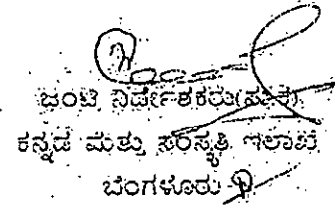 ಜಂಟಿ ನಿರ್ದೇಶಕರು(ಸು.ಕ)
ಕನ್ನಡ ಮತ್ತು ಸಂಸ್ಕೃತಿ ಇಲಾಖೆ
ಬೆಂಗಳೂರು